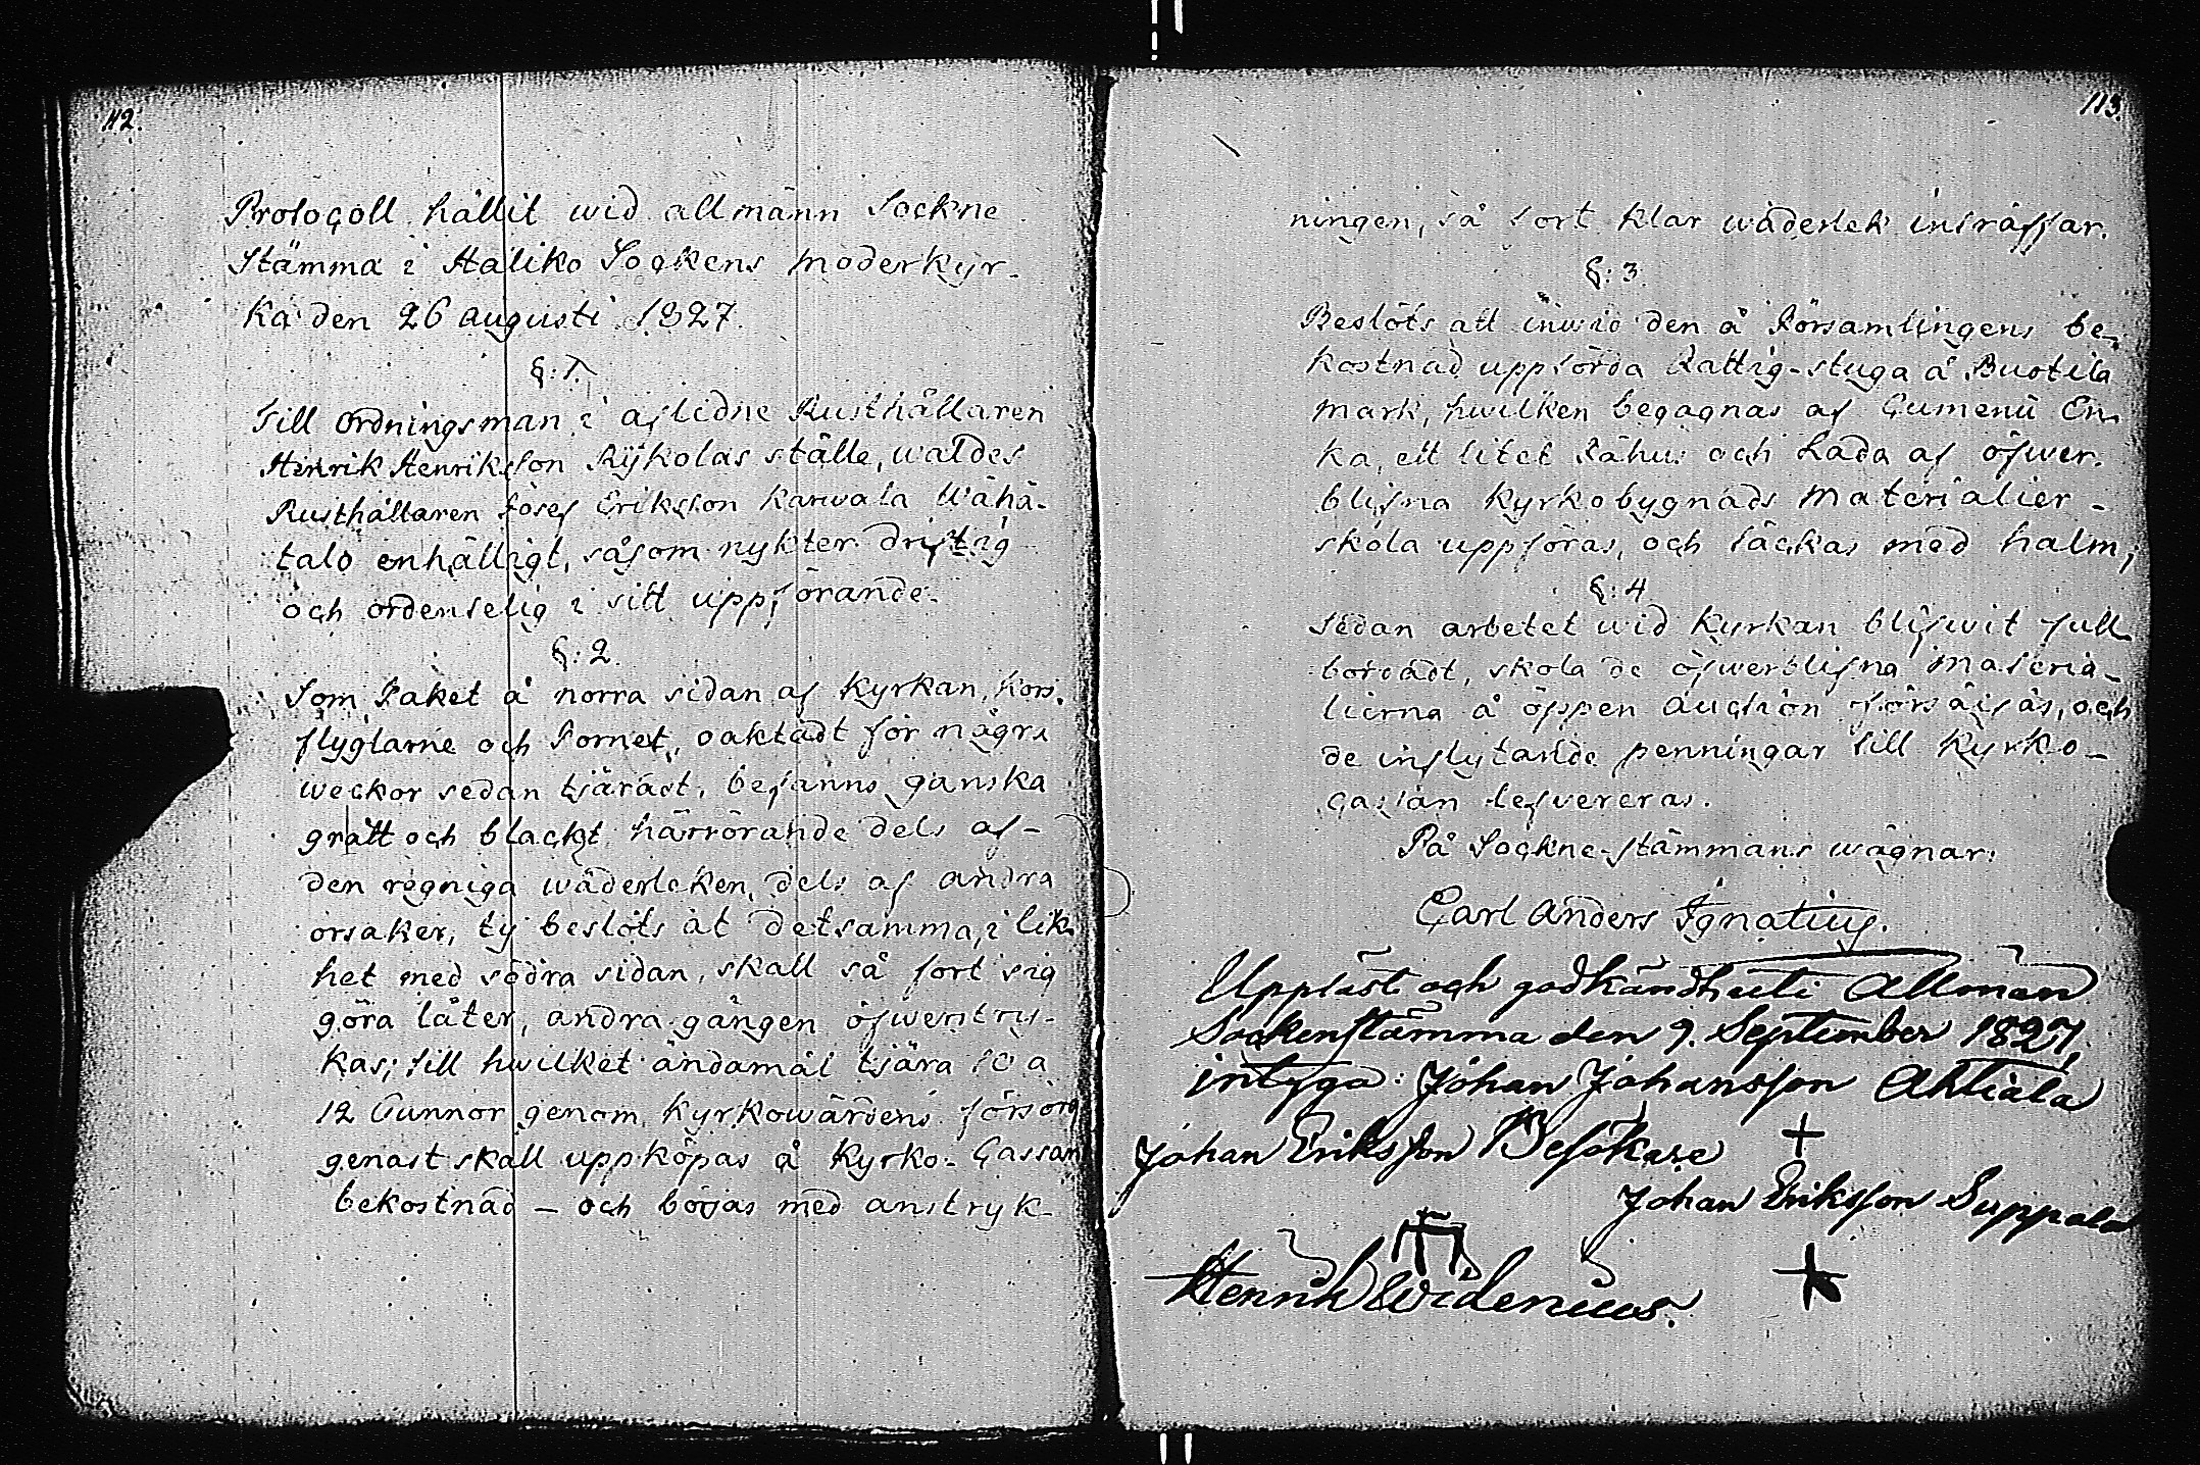 112.
Protocoll hållit wid allmänn Sockne
Stämma i Haliko Sockens moderkyr-
ka den 26 augusti 1827.
§: 1.
Till ordningsman i aflidne Rusthållaren
Henrik Henriksson Rijkolas ställe, waldes
Rusthållaren Josef Eriksson Karwala Wähä-
talo enhälligt, såsom nykter driftig
och ordenteliq i sitt uppförande.
§: 2.
Som Taket å norra sidan af Kyrkan, Kors.
flyglarne och Tornet, oaktadt för några
weckor sedan tjäradt, befanns ganska
grått och blackt, härrörande dels af-
den regniga wäderleken, dels af andra
orsaker, ty beslöts at detsamma, i lik-
het med södra sidan, skall så fort sig
göra låter, andra gången öfwerstry-
kas; till hwilket ändamål tjära 10 a
12 Tunnor genom Kyrkowärdens försorg
genast skall uppköpas å Kyrko-Cassans
bekostnad – och börjas med anstryk-
113.
ningen, så fort klar wäderlek inträffar.
§: 3.
Beslöts att inwid den å Församlingens be-
kostnad uppförda Fattig-stuga å Buotila
mark, hwilken begagnas af Gumenü En-
ka, ett litet Fähus och Lada af öfwer-
blifna Kyrkobygnads materialier -
skola uppföras, och täckas med halm,
§: 4
Sedan arbetet wid Kyrkan blifwit full
bordadt, skola de öfwerblifna materia-
lierna å öppen auction försäljas, och
de inflytande penningar till Kyrko-
Cassan lefvereras.
På Sockne-stämmans wägnar:
Carl Anders Ignatius.
Uppläst och godkändt uti Allmän
Sockenstämma den 9. September 1827,
intyga: Johan Johansson Ahtiala
Johan Eriksson Besökare
Johan Eriksson Suppala
Henrik Widenius.